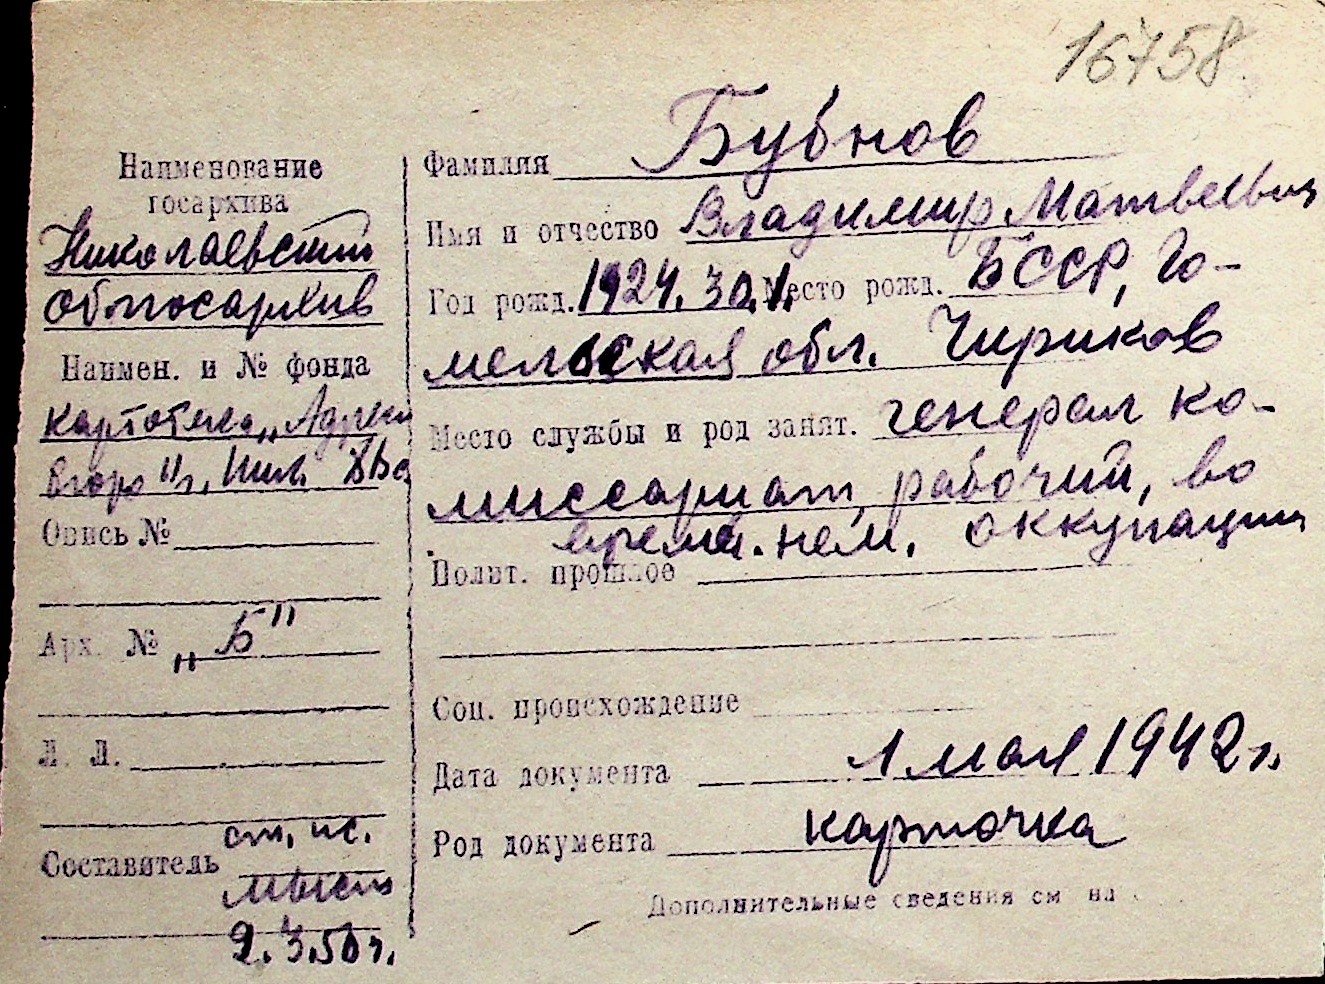 16758
Наименование
госархива
Николаевский
облгосархив
Наимен. и № фонда
картотека „Адрес
бюро" г. Ник.
Опись №
Арх. № „Б"
Л. Л.
Составитель ст. ис.
2.3.50 г.
Фамилия Бубнов
Имя и отчество Владимир Матвеевич
Год рожд. 1924. 30.1. Место рожд. БССР, Го-
мельская обл. Чириков
Место службы и род занят. генерал ко-
миссариат, рабочий, во
время. нем. оккупации
Полит. прошлое
Соц. происхождение
Дата документа 1 мая 1942 г.
Род документа карточка
Дополнительные сведения см на